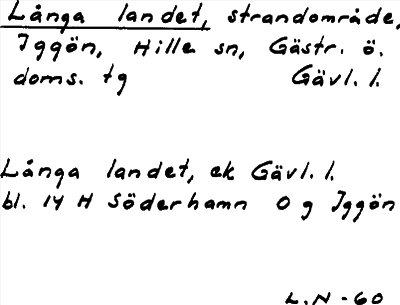 Långa landet, strandområde,
Iggön, Hille sn, Gästr. ö.
doms. tg Gävl. l.
Långa landet, ek Gävl. l.
bl. 14 H Söderhamn O g Iggön
L.N-60